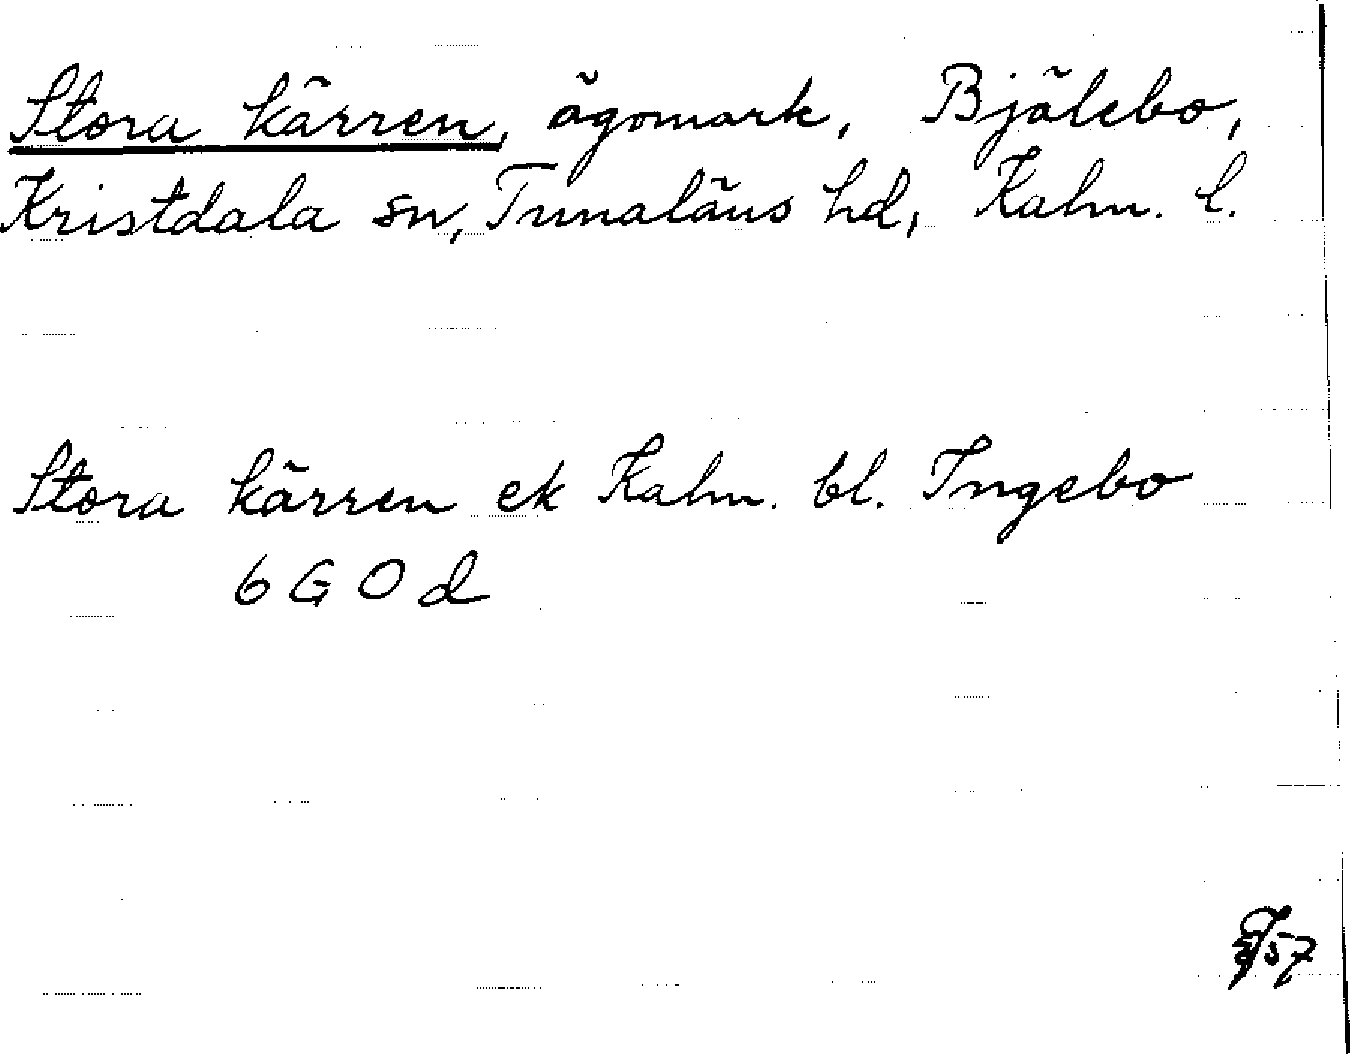 Stora kärren, ägomark, Bjälebo,
Kristdala sn, Tunaläns hd, Kalm. l.
Stora kärren ek Kalm. bl. Ingebo
6 G O d
57